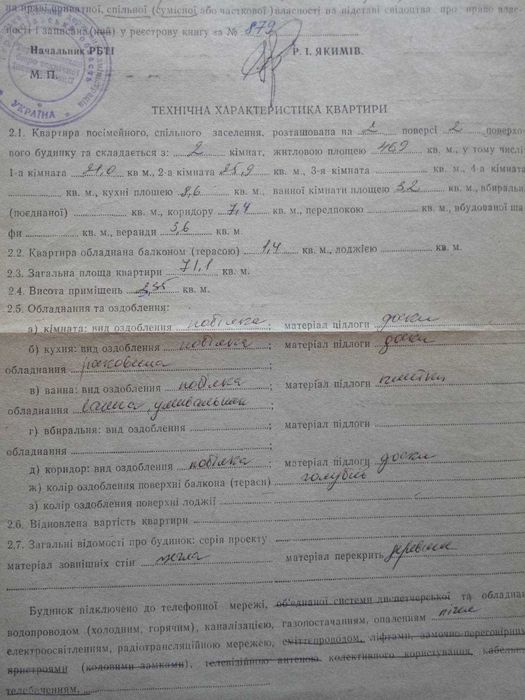 на праві приватної, спільної (сумісної або часткової) власності на підставі свідоцтва про право влас-
ності і записана (ний) у реєстрову книгу за № 879
Начальник РБТІ Р. І. ЯКИМІВ.
М. П.
УКРАЇНА
ТЕХНІЧНА ХАРАКТЕРИСТИКА КВАРТИРИ
2.1. Квартира посімейного, спільного заселення, розташована на 2 поверсі 2 поверхо-
вого будинку та складається з: 2 кімнат, житловою площею 46,9 кв. м., у тому числі
1-а кімната 21,0 кв м., 2-а кімната 25,9 кв. м., 3-я кімната кв. м., 4-а кімната
кв. м., кухні площею 8,6 кв. м., ванної кімнати площею 3,2 кв. м., вбиральн
(поєднаної) кв. м., коридору 7,4 кв. м., передпокою кв. м., вбудованої ша
фи кв. м., веранди 3,6 кв. м.
2.2. Квартира обладнана балконом (терасою) 1,4 кв. м., лоджією кв. м.
2.3. Загальна площа квартири 71,1 кв. м.
2.4. Висота приміщень кв. м.
2.5. Обладнання та оздоблення:
а) кімната: вид оздоблення побілка; матеріал підлоги доски
б) кухня: вид оздоблення побілка; матеріал підлоги доски
обладнання раковина
в) ванна: вид оздоблення побілка; матеріал підлоги плитки
обладнання ванна, умивальник
г) вбиральня: вид оздоблення ; матеріал підлоги
обладнання
д) коридор: вид оздоблення побілка; матеріал підлоги доски
ж) колір оздоблення поверхні балкона (тераси) голубий
з) колір оздоблення поверхні лоджії
2.6. Відновлена вартість квартири
2,7. Загальні відомості про будинок: серія проекту
матеріал зовнішніх стін цегла матеріал перекрить деревяне
Будинок підключено до телефонної мережі, об'єднаної системи диспетчерської та обладнан
водопроводом (холодним, горячим), каналізацією, газопостачанням, опаленням пічне
електроосвітленням, радіотрансляційною мережею, сміттєпроводом, ліфтами, замочно-переговорним
пристроями (кодовими замками), телевізійною антеною колективного користування, кабельн
телебаченням,